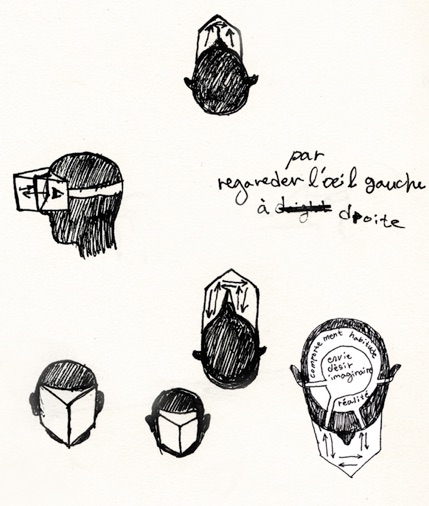 par
regareder l'œil gauche
à droite
comportement habitude
envie
désir
imaginaire
réalité